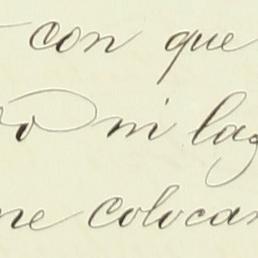 con que
ni la
me colocan